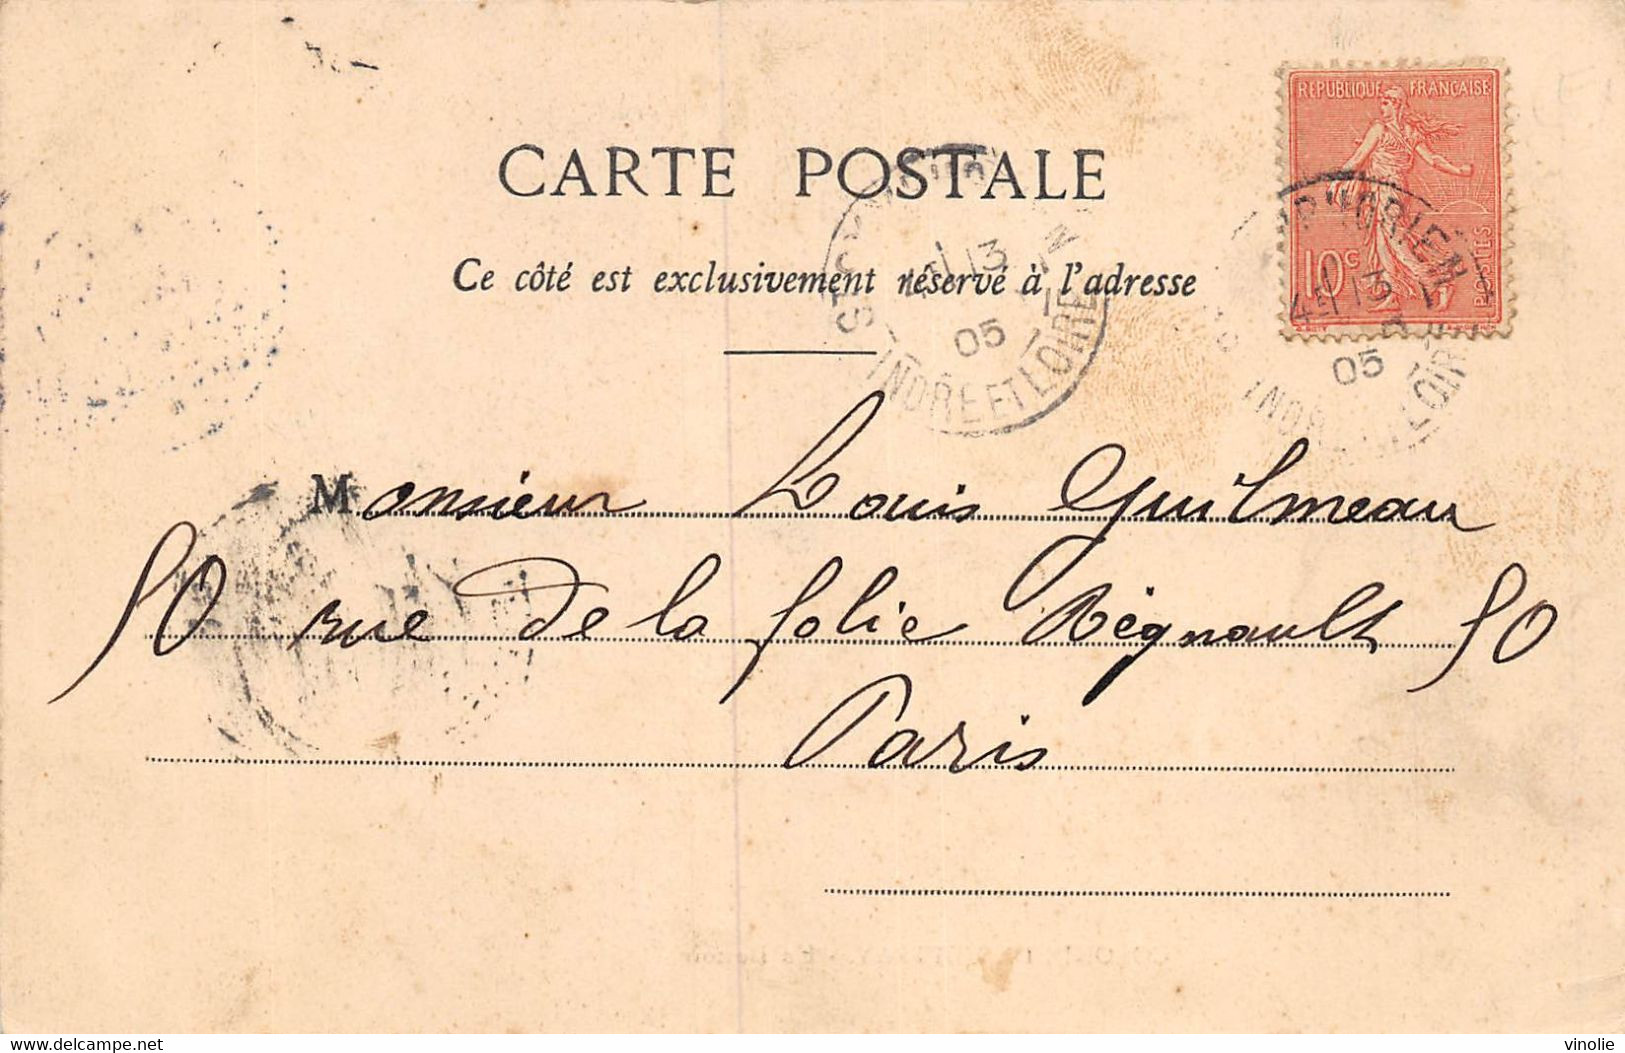 CARTE POSTALE
Ce côté est exclusivement réservé à l'adresse
REPUBLIQUE FRANÇAISE
10c
POSTES
13
05
INDRE ET LOIRE
13
05
Monsieur Louis Guilmeau
50 rue de la folie Régnault 50
Paris
www.delcampe.net
vinolie